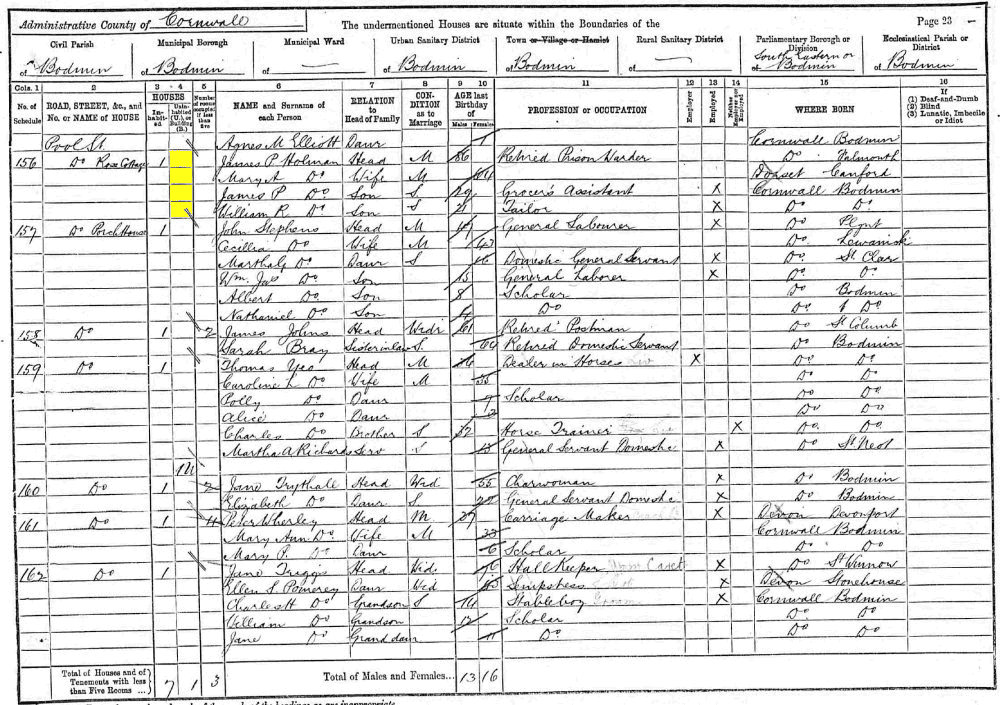 Administrative County of Cornwall The undermentioned Houses are situate within the Boundaries of the Page 23
Civil Parish Municipal Borough Municipal Ward Urban Sanitary District Town or Village or Hamlet Rural Sanitary District Parliamentary Borough or Division Ecclesiastical Parish or District
of Bodmin of Bodmin of — of Bodmin of Bodmin of — of South Eastern or Bodmin of Bodmin
Cols. 1 2 3 4 5 6 7 8 9 10 11 12 13 14 15 16
No. of Schedule ROAD, STREET, &c., and No. or NAME of HOUSE HOUSES Inhabited Uninhabited (U.), or Building (B.) Number of rooms occupied if less than five NAME and Surname of each Person RELATION to Head of Family CONDITION as to Marriage AGE last Birthday of Males Females PROFESSION or OCCUPATION Employer Employed Neither Employer nor Employed WHERE BORN If (1) Deaf-and-Dumb (2) Blind (3) Lunatic, Imbecile or Idiot
Pool St Agnes M Elliott Daur 1 Cornwall Bodmin
156 Do Rose Cottage 1 James P Holman Head M 66 Retired Prison Warder Do Falmouth
Mary A Do Wife M 64 Dorset Canford
James P Do Son S 29 Grocer's Assistant X Cornwall Bodmin
William R Do Son S 21 Tailor X Do Do
157 Do Porch House 1 John Stephens Head M General Labourer X Do
Cecillia Do Wife M 43 Do Lewanick
Martha Do Daur S 16 Domestic General Servant X Do St Clar
Wm. Jas Do Son 15 General Laborer X Do Do
Albert Do Son 8 Scholar Do Bodmin
Nathaniel Do Son 4 Do Do Do
158 Do 1 2 James Johns Head Widr 61 Retired Postman Do St Columb
Sarah Bray Sister in law S 64 Retired Domestic Servant Do Bodmin
159 Do 1 Thomas Yeo Head M Dealer in Horses X Do Do
Caroline L Do Wife M 35 Do Do
Polly Do Daur 7 Scholar Do Do
Alice Do Daur 2 Do Do
Charles Do Brother S 32 Horse Trainer X Do Do
Martha A Richards Serv 15 General Servant Domestic X Do St Neot
1U
160 Do 1 2 Jane Trythall Head Wid 55 Charwoman X Do Bodmin
Elizabeth Do Daur S 22 General Servant Domestic X Do Bodmin
161 Do 1 4 Peter Wherley Head M 37 Carriage Maker X Devon Devonport
Mary Ann Do Wife M 33 Cornwall Bodmin
Mary P. Do Daur 6 Scholar Do Do
162 Do 1 Jane Triggs Head Wid 76 Hall Keeper X Do St Winnow
Ellen S. Pomerey Daur Wid 45 Sempstress X Devon Stonehouse
Charles H Do Grandson S 14 Stableboy Groom X Cornwall Bodmin
William Do Grandson 12 Scholar Do Do
Jane Do Grand daur 11 Do Do Do
Total of Houses and of Tenements with less than Five Rooms ... 7 1 3 Total of Males and Females... 13 16